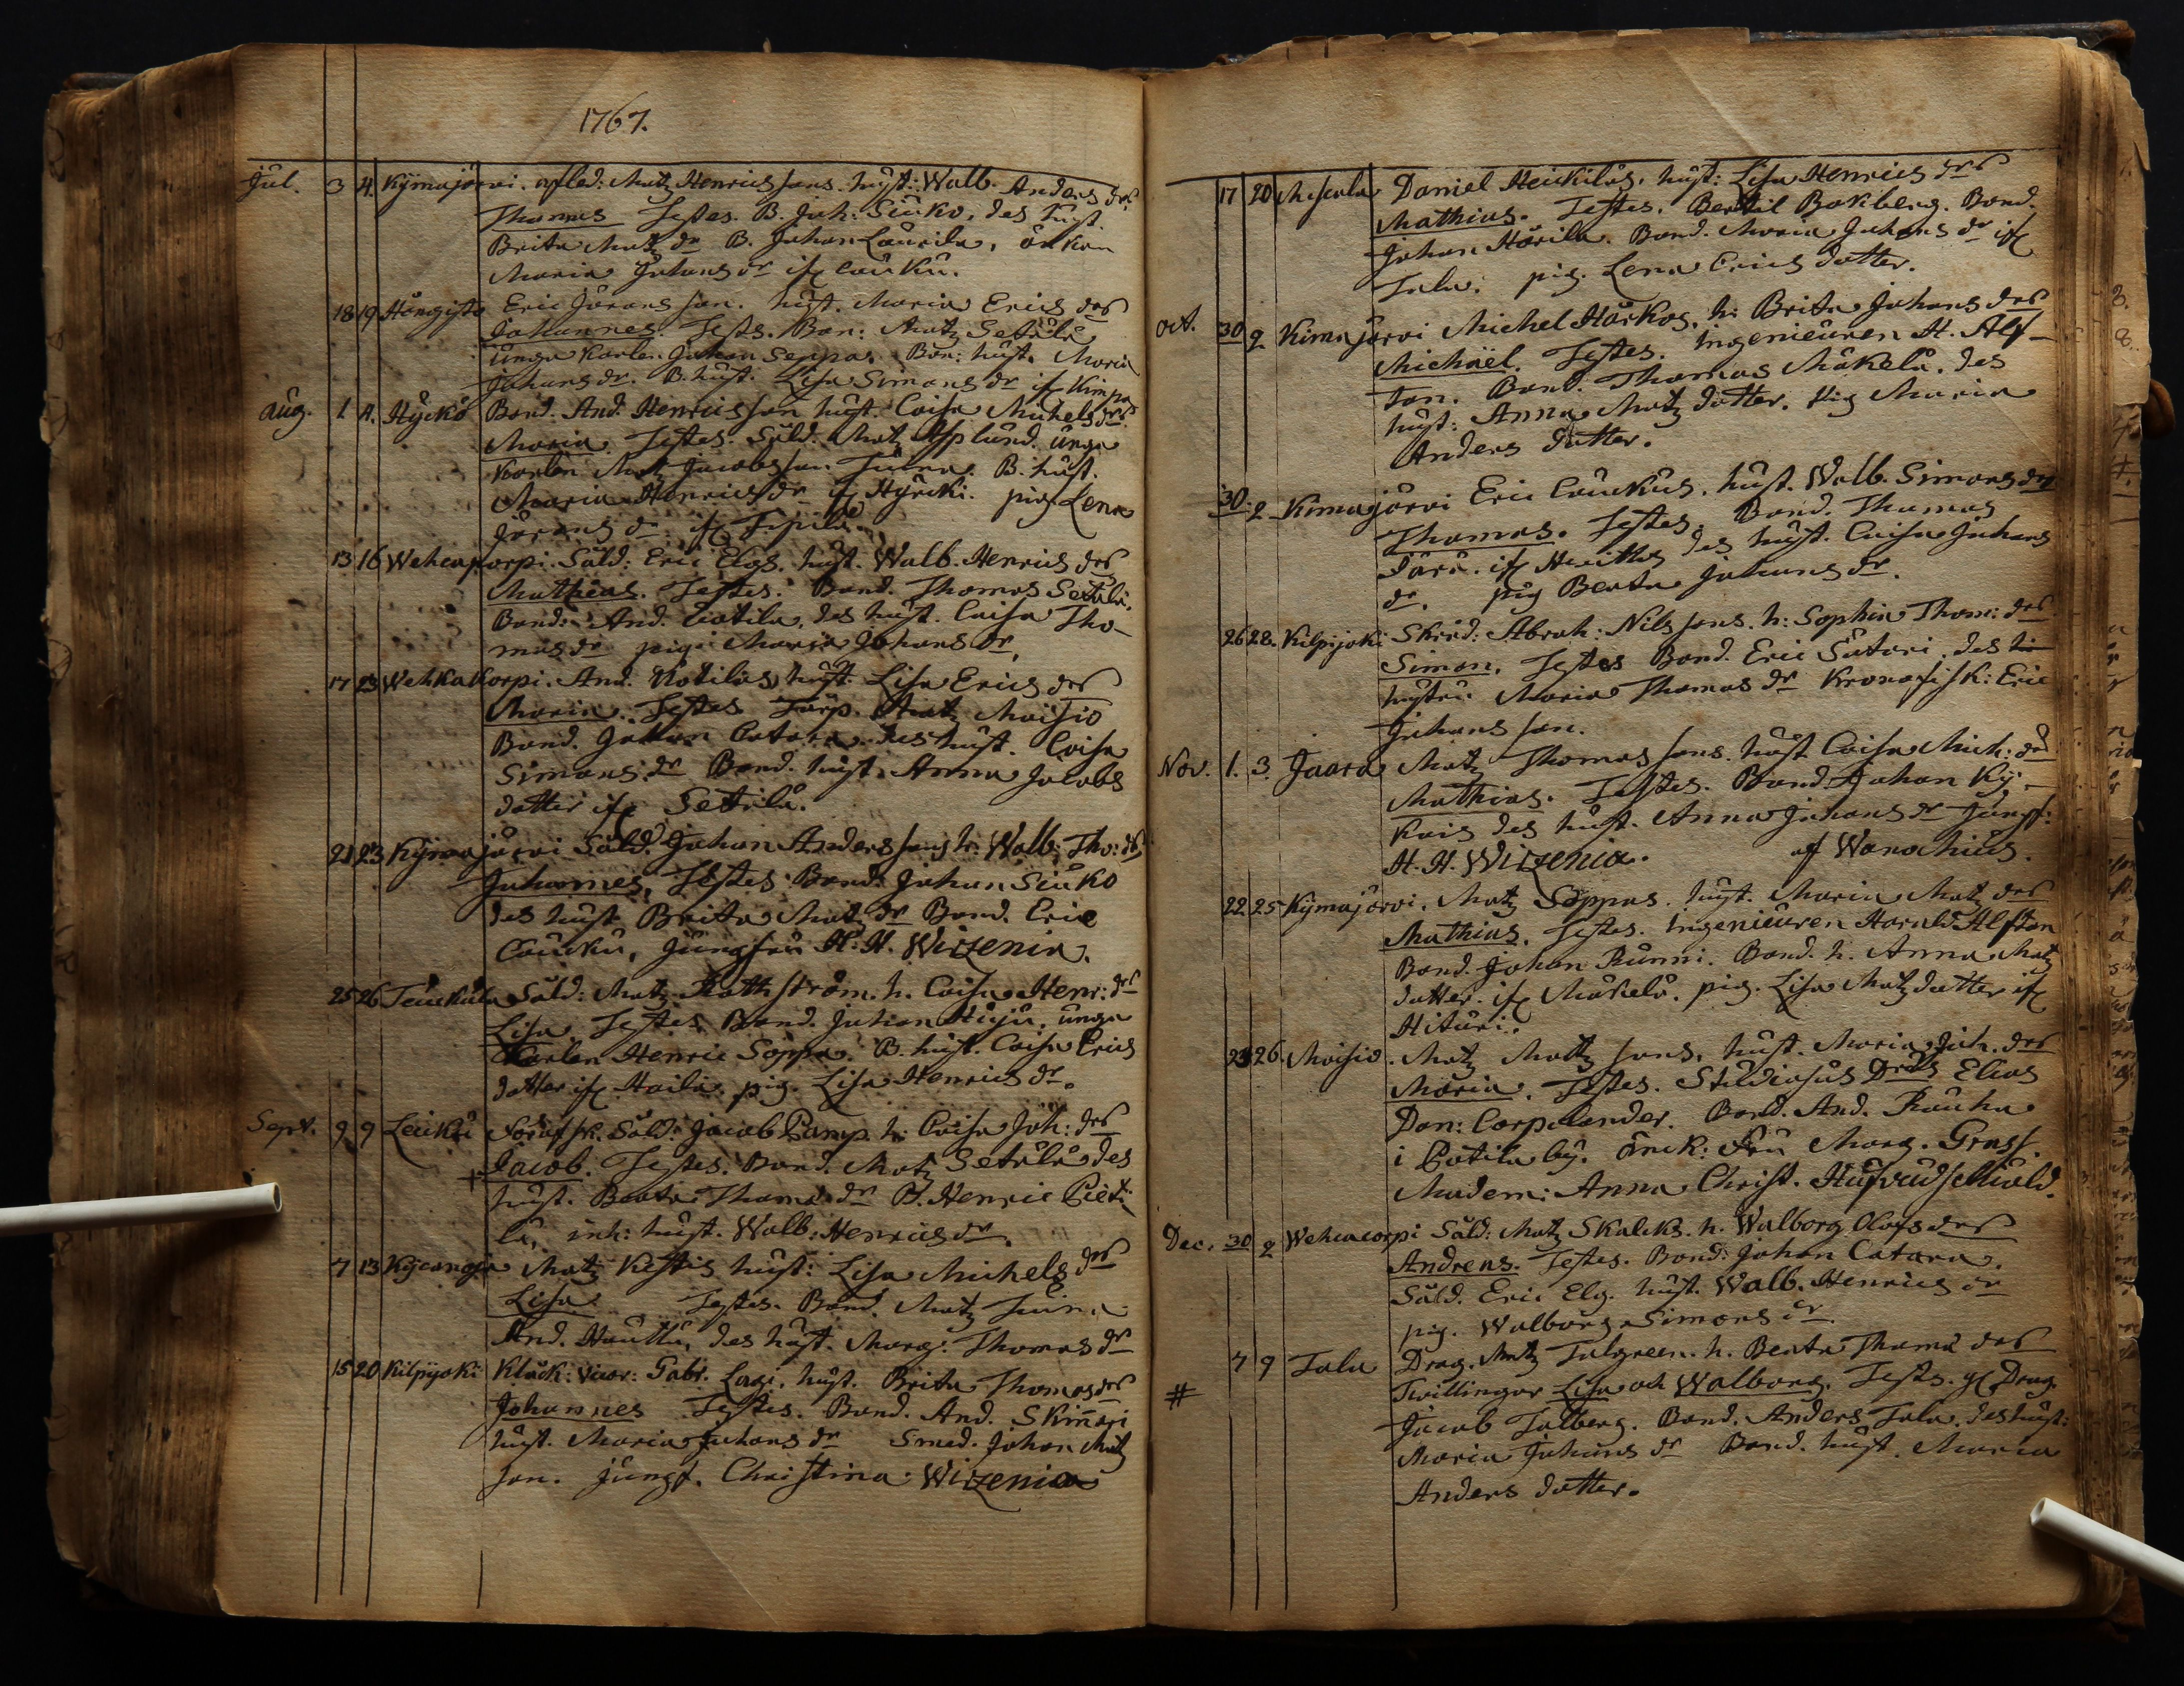 1767.
Jul. 3 4. Kijmajärvi. afled: Matz Henricssons hust: Walb. Anders dr
Thomas Testes. B. Joh: Siuko, des hust.
Brita Matz dr B. Johan Laurila, änkan
Maria Johans dr if Lauku.
18 19 Hångisto Eric Jöransson. hust. Maria Erics dr
Johannes. Test. Bon: Matz Setälä
unga Karlen Johan Seppä. Bon: hust. Maria
Johans dr. B. hust. Lisa Simons dr if Kimpa
Aug. 1. 2. Hyrkö Bond. And. Henricsson hust. Caisa Michels dr
Maria. Testes. Såld. Matz Asplund. unga
Karlen Matz Jacobsson B. hust.
Maria Henrics dr if Hyrcki. pig. Lena
Jörans dr if
13 16 Wehcakorpi. Såld: Eric Elgs. hust. Walb. Henrics dr
Mathias. Testes. Bond. Thomas Setälä.
Bond. And. Uotila, des hust. Caisa Tho-
mas dr pig. Maria Johans dr.
17 23 Wehkakorpi. And. Uotilas hust. Lisa Erics dr
Maria. Testes. Torp. Matz Moisio
Bond. Johan Catara des hust. Caisa
Simons dr Bond. hust. Anna Jacobs
dotter if Setälä.
21 23 Kymajärvi Såld. Johan Anderssons h: Walb: Tho: dr
Johannes, Testes Bond: Johan Siuko
des hust Brita Matz dr Bond. Eric
Laucku, Jungfru H. H. Wizenia.
25 26 Teuckula Såld: Matz Rothström. h. Caisa Henr: dr
Lisa Testes Bond. Johan Huju, unga
Karlen Henric Soppa. B. hust. Caisa Erics
dotter if Haila. pig. Lisa Henrics dr.
Sept. 9 9 Leuku Förafsk. Såld: Jacob Pamp. h: Caisa Joh: dr
Jacob. Testes. Bond. Matz Setälä des
hust. Beata Thomæ dr B. Henric Pieti-
lä, inh: hust. Walb: Henrics dr.
7 13 Kycanoja Matz Kestis hust: Lisa Michels dr
Lisa Testes. Bond. Matz
And. Hauttu, des hust. Marg: Thomas dr
15 20 Kilpijoki Klåck: Vicar: Gabr. Lagi, hust. Brita Thomas dr
Johannes Testes. Bond. And. Skinnari
hust. Maria Johans dr Smed. Johan Matz
son. Jungf. Christina Wizenia
17 20 Mescala Daniel Heickiläs, hust: Lisa Henrics dr
Mathias. Testes. Bertil Bokberg. Bond.
Johan Härilä. Bond. Maria Johans dr if
Tala. pig. Lena Erics dotter.
Oct. 30 2 Kimajärvi Michel Härkos, h: Brita Johans dr
Michäel. Testes. ingenieuren H. Alf-
tan. Bond: Thomas Mäkelä, des
hust: Anna Matz dotter. Pig Maria
Anders dotter.
30 2 Kimajärvi Eric Lauckus, hust. Walb. Simons dr
Thomas. Testes. Bond. Thomas
des hust. Caisa Johans
dr. pig Beata Johans dr.
26 28. Kilpijoki Skräd: Abrah: Nils sons. h: Sophia Thom: dr
Simon. Testes Bond. Eric Sutari, des
hustru Maria Thomas dr Kronofisk: Eric
Johansson.
Nov. 1. 3. Jaara Matz Thomas sons hust Caisa Mich: dr
Mathias. Testes. Bond. Johan Ky-
kois des hust. Anna Johans dr Jungf:
H. H. Wizenia. af Wanahius.
22 25 Kijmajärvi. Matz Soppas. hust. Maria Matz dr
Mathias. Testes. Ingenieuren Harald Alftan
Bond. Johan Runni. Bond. h. Anna Matz
dotter if Mäkelä. pig. Lisa Matz dotter if
Hituri.
23 26. Moisio. Matz Matz sons, hust. Maria Joh. dr
Maria. Testes. Studiosus Elias
Dan: Corpelander. Bond. And. Rauha
i Potila by. änck: Fru Marg. Grass.
Madem: Anna Christ. Hufvudschiöld.
Dec. 30 2 Wehcacorpi Såld: Matz Skalcks. h. Walborg Olofs dr
Andreas. Testes. Bond: Johan Catara.
Såld. Eric Elg. hust. Walb. Henrics dr
pig. Walborg Simons dr.
7 9 Tala Drag. Matz Talgreen. h. Beata Thomæ dr
# Twillingar Lisa och Walborg. Test. Drag.
Jacob Talberg. Bond. Anders Tala, des hust:
Maria Johans dr Bond. hust. Maria
Anders dotter.